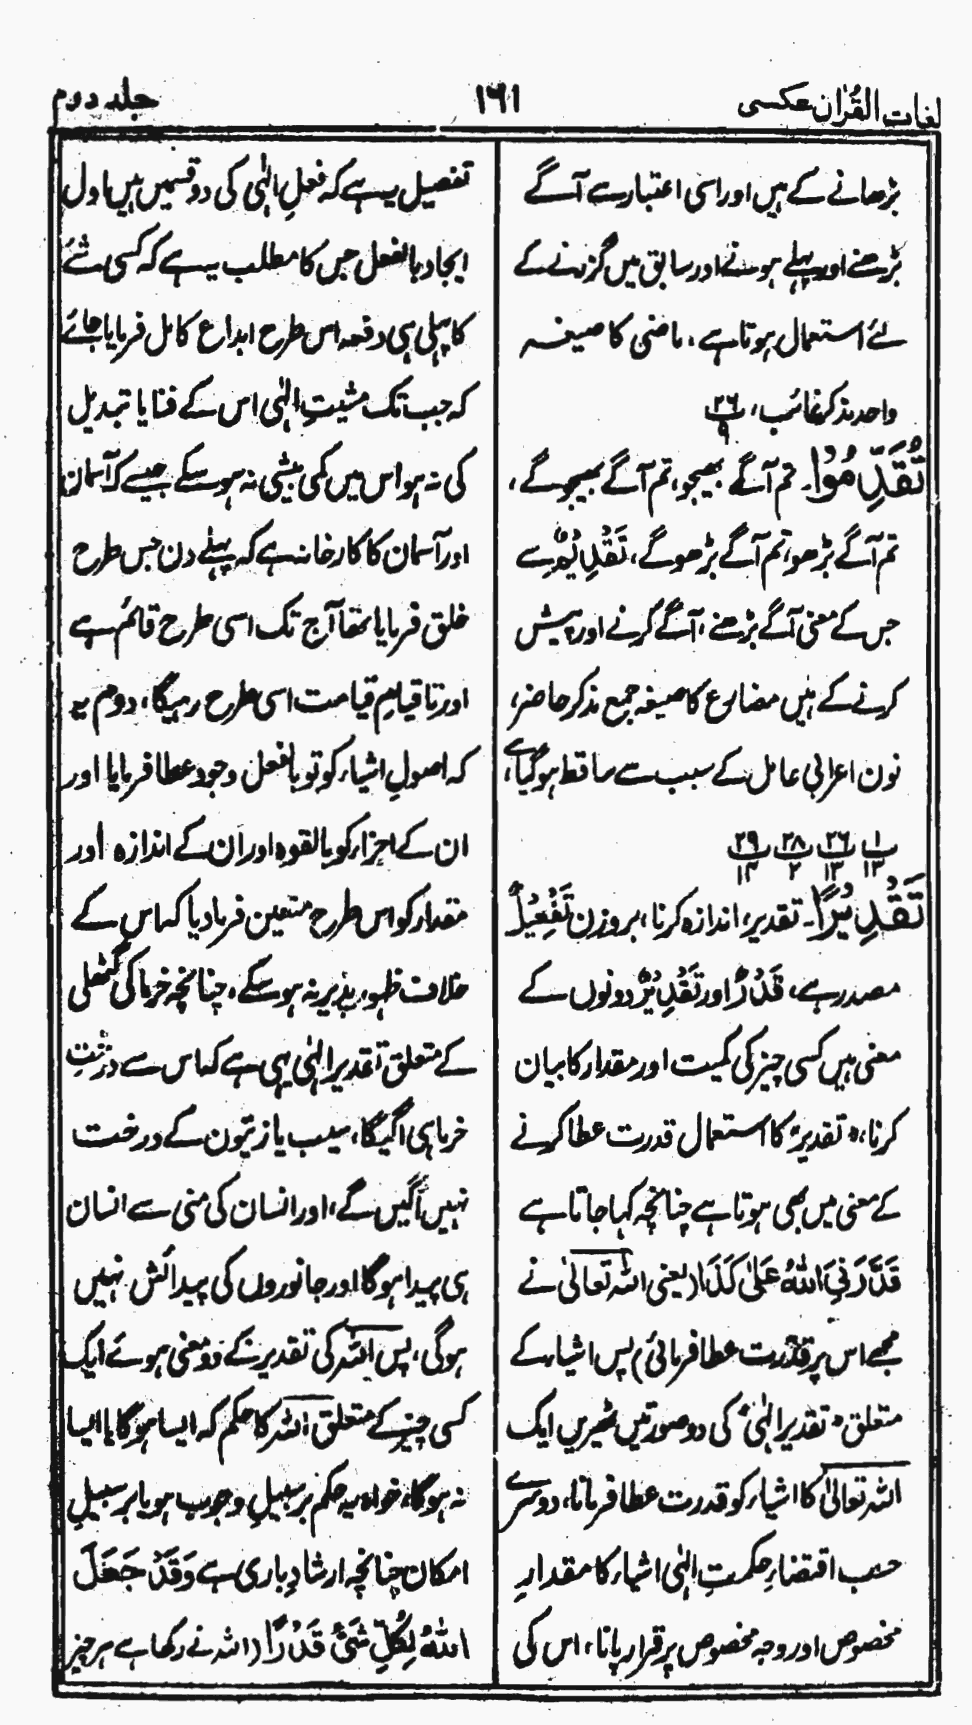 لغات القرآن عکسی
۱۶۱
جلد دوم
بڑھانے کے ہیں اور اسی اعتبار سے آگے
بڑھنے اور پہلے ہونے اور سابق میں گزرنے کے
لئے استعمال ہوتا ہے، ماضی کا صیغہ
واحد مذکر غائب، ۲۶ ۹
تُقَدِّمُوْا۔ تم آگے بھیجو، تم آگے بھیجو گے،
تم آگے بڑھو، تم آگے بڑھو گے، تَقْدِیْمٌ سے
جس کے معنی آگے بڑھنے، آگے کرنے اور پیش
کرنے کے ہیں مضارع کا صیغہ جمع مذکر حاضر،
نون اعرابی عامل کے سبب سے ساقط ہوگیا ہے،
۱ ۱۳ ۲۶ ۱۳ ۲۸ ۲ ۲۹ ۱۳
تَقْدِیْرًا۔ تقدیر، اندازہ کرنا، بروزن تَفْعِیْلٌ
مصدر ہے، قَدْرٌ اور تَقْدِیْرٌ دونوں کے
معنی ہیں کسی چیز کی کمیت اور مقدار کا بیان
کرنا، "تقدیر" کا استعمال قدرت عطا کرنے
کے معنی میں بھی ہوتا ہے چنانچہ کہا جاتا ہے
قَدَّرَنِیَ اللّٰہُ عَلیٰ کَذَا (یعنی اللہ تعالیٰ نے
مجھے اس پر قدرت عطا فرمائی) پس اشیاء کے
متعلق "تقدیر الٰہی" کی دو صورتیں ٹھیریں ایک
اللہ تعالیٰ کا اشیاء کو قدرت عطا فرمانا، دوسرے
حسب اقتضاءِ حکمتِ الٰہی اشیاء کا مقدارِ
مخصوص اور وجہ مخصوص پر قرار پانا، اس کی
تفصیل یہ ہے کہ فعلِ الٰہی کی دو قسمیں ہیں اول
ایجاد بالفعل جس کا مطلب یہ ہے کہ کسی شئے
کا پہلی ہی دفعہ اس طرح ابداع کامل فرمایا جائے
کہ جب تک مشیتِ الٰہی اس کے فنا یا تبدیل
کی نہ ہو اس میں کمی بیشی نہ ہوسکے جیسے کہ آسمان
اور آسمان کا کارخانہ ہے کہ پہلے دن جس طرح
خلق فرمایا تھا آج تک اسی طرح قائم ہے
اور تا قیامِ قیامت اسی طرح رہیگا، دوم یہ
کہ اصولِ اشیاء کو تو بالفعل وجود عطا فرمایا اور
ان کے اجزاء کو بالقوہ اور ان کے اندازہ اور
مقدار کو اس طرح متعین فرما دیا کہ اس کے
خلاف ظہور پذیر نہ ہوسکے، چنانچہ خرما کی گٹھلی
کے متعلق تقدیرِ الٰہی یہی ہے کہ اس سے درختِ
خرما ہی اگیگا، سیب یا زیتون کے درخت
نہیں اگیں گے، اور انسان کی منی سے انسان
ہی پیدا ہوگا اور جانوروں کی پیدائش نہیں
ہوگی، پس اللہ کی تقدیر کے دو معنی ہوئے ایک
کسی چیز کے متعلق اللہ کا حکم کہ ایسا ہوگا یا ایسا
نہ ہوگا، خواہ یہ حکم برسبیلِ وجوب ہو یا برسبیلِ
امکان چنانچہ ارشادِ باری ہے وَقَدْ جَعَلَ
اللّٰہُ لِکُلِّ شَیْءٍ قَدْرًا (اللہ نے رکھا ہے ہر چیز